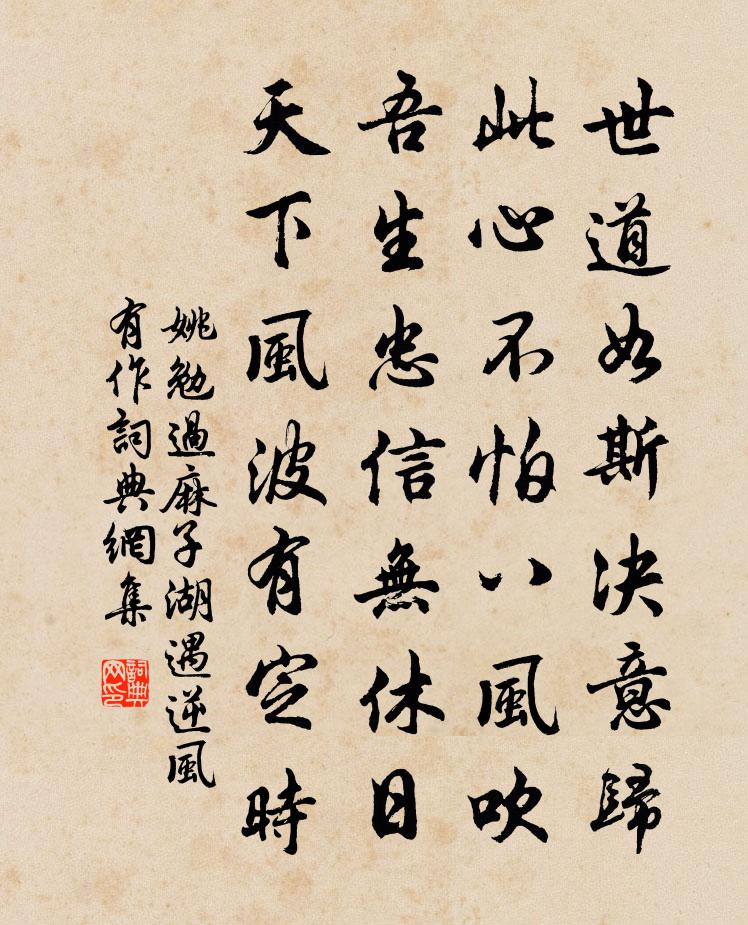 世道如斯決意歸
此心不怕八風吹
吾生忠信無休日
天下風波有定時
姚勉過麻子湖遇逆風
有作詞典網集
詞典
网印